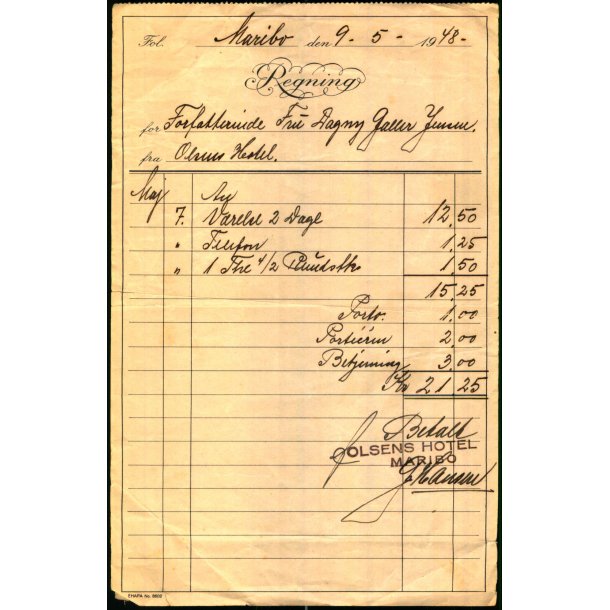 Fol. Maribo den 9 - 5 - 1948 -
Regning
for Forfatterinde Frü Dagny Galler Jensen.
fra Olsens Hotel.
Maj Ny
7. Værelse 2 Dage 12,50
" Telefon 1,25
" 1 The 4/2 1,50
15,25
Porto. 1,00
Portieren 2,00
Betjening 3,00
Kr 21,25
Betalt
OLSENS HOTEL
MARIBO
Hansen
EHAPA No. 8602